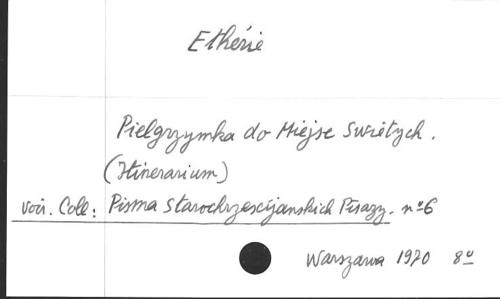 Ethérie
Pielgrzymka do Miejsc Swiętych.
(Itinerarium)
voir. Coll: Pisma Starochrzescijanskich Pisazy. nº6
Warszawa 1970 8º